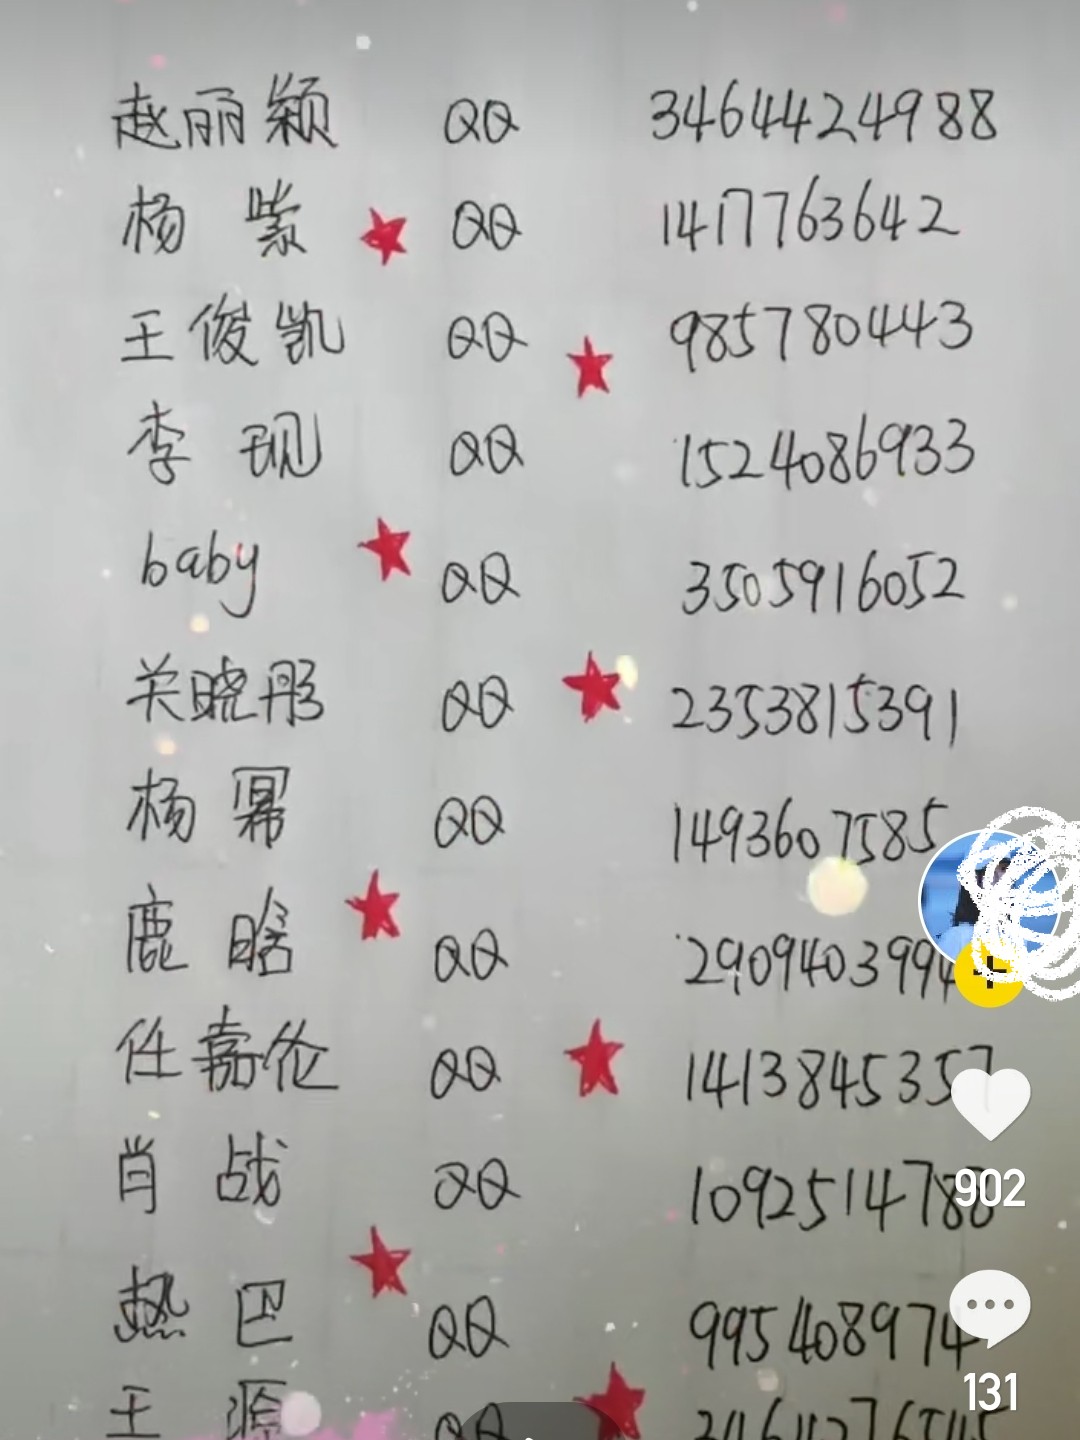 赵丽颖 QQ 3464424988
杨紫 QQ 1417763642
王俊凯 QQ 985780443
李现 QQ 1524086933
baby QQ 3505916052
关晓彤 QQ 2353815391
杨幂 QQ 1493607585
鹿晗 QQ 2909403994
任嘉伦 QQ 1413845357
肖战 QQ 1092514788
902
热巴 QQ 995408974
131
王源 QQ